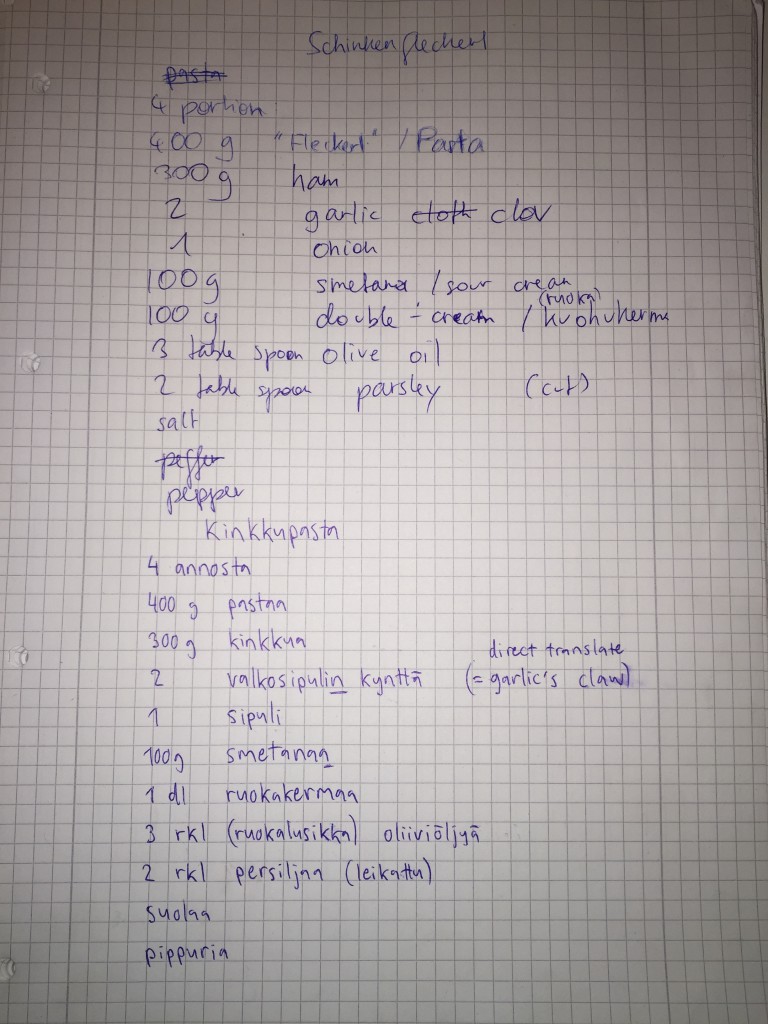 Schinkenfleckerl
pasta
4 portion
400 g "Fleckerl" / Pasta
300 g ham
2 garlic clov
1 onion
100 g smetana / sour cream
(ruoka)
100 g double-cream / kuohukerma
3 table spoon olive oil
2 table spoon parsley (cut)
salt
peffer
pepper
Kinkkupasta
4 annosta
400 g pastaa
300 g kinkkua
direct translate
2 valkosipulin kynttä (= garlic's claw)
1 sipuli
100g smetanaa
1 dl ruokakermaa
3 rkl (ruokalusikka) oliiviöljyä
2 rkl persiljaa (leikattu)
suolaa
pippuria